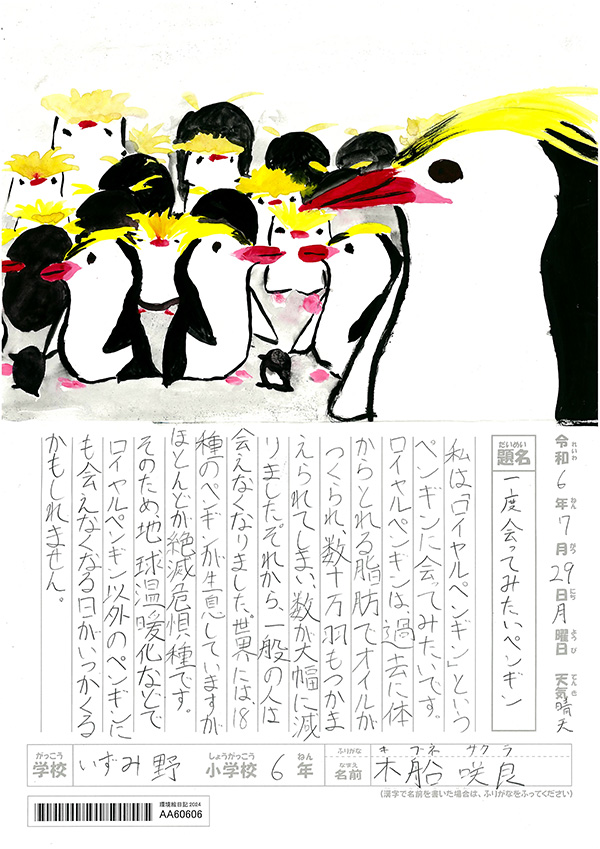 令和6年7月29日月曜日 天気晴天
れいわ ねん がつ にち ようび てんき
題名 一度会ってみたいペンギン
だいめい
私は「ロイヤルペンギン」という
ペンギンに会ってみたいです。
ロイヤルペンギンは、過去に体
からとれる脂肪でオイルが
つくられ、数十万羽もつかま
えられてしまい、数が大幅に減
りましたそれから、一般の人は
会えなくなりました。世界には18
種のペンギンが生息していますが
ほとんどが絶滅危惧種です。
そのため地球温暖化などで
ロイヤルペンギン以外のペンギンに
も会えなくなる日がいつかくる
かもしれません。
がっこう しょうがっこう ねん
学校 いずみ野 小学校 6年
ふりがな キブネ サクラ
なまえ
名前 木船 咲良
(漢字で名前を書いた場合は、ふりがなをふってください)
環境絵日記 2024
AA60606